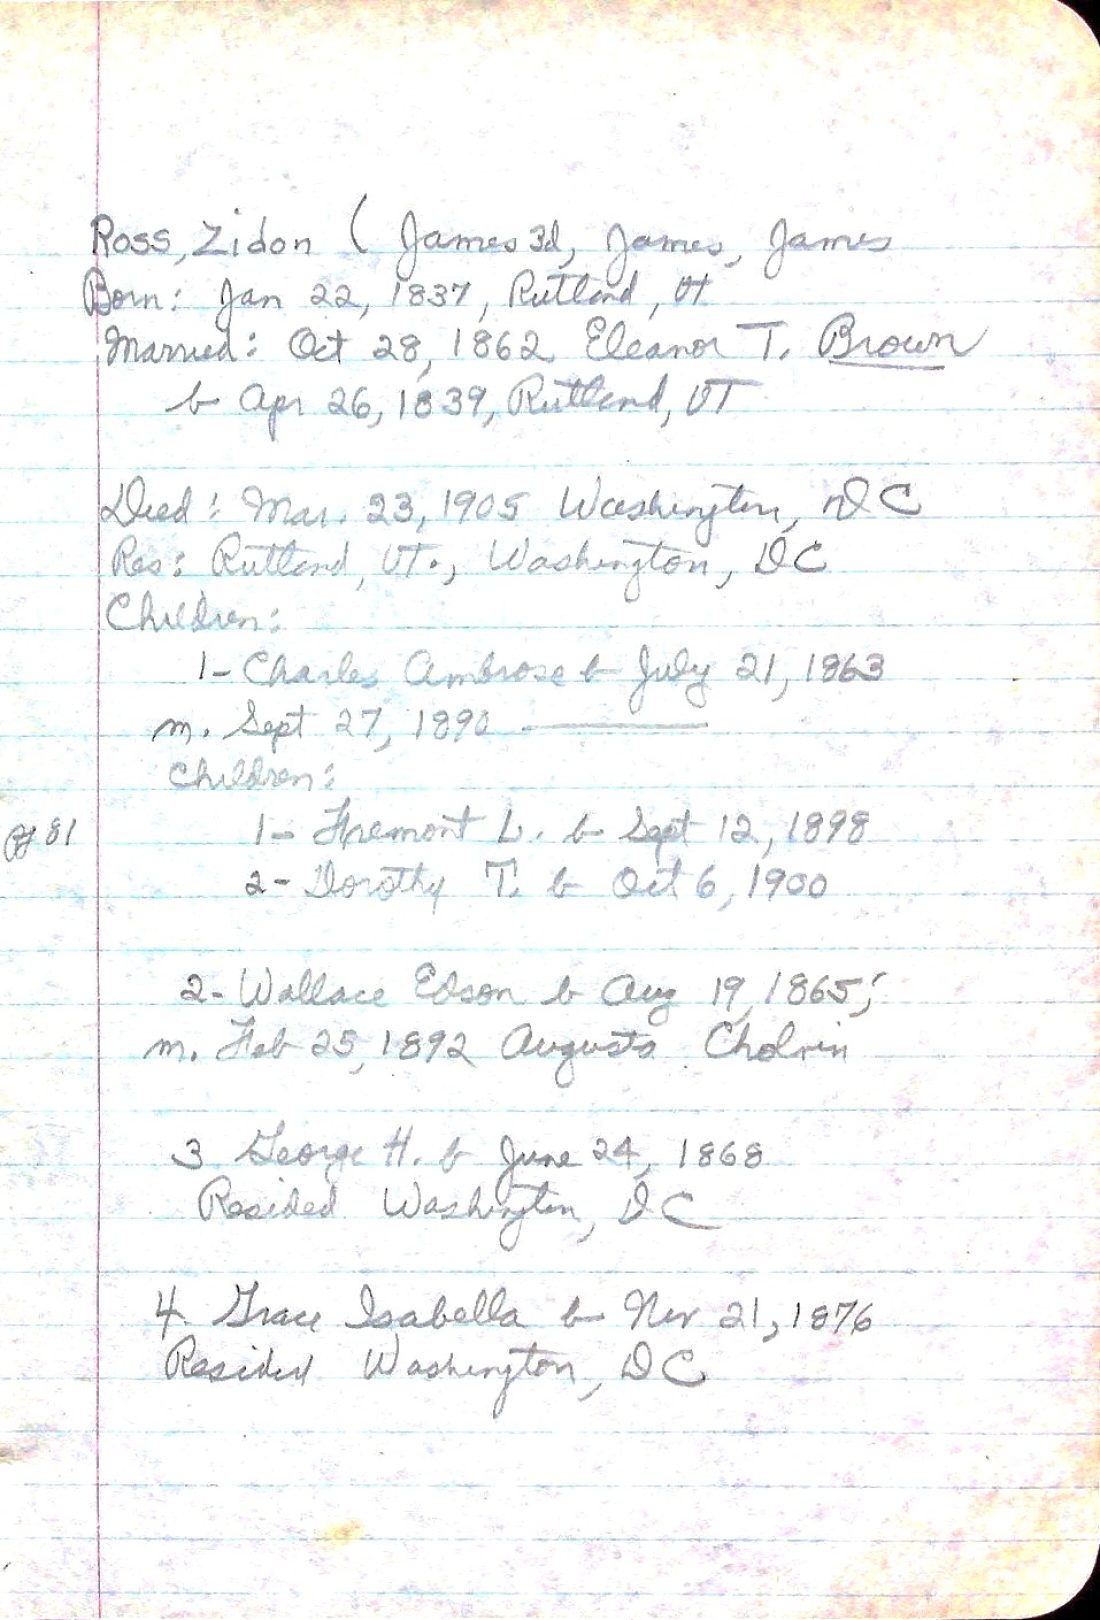 Ross, Zidon ( James 3d, James, James
Born: Jan 22, 1837, Rutland, Vt
Married: Oct 28, 1862 Eleanor T. Brown
b Apr 26, 1839, Rutland, VT
Died: Mar. 23, 1905 Washington, DC
Res: Rutland, VT., Washington, DC
Children:
1- Charles Ambrose b July 21, 1863
m. Sept 27, 1890 ———
Children:
1- Fremont L. b Sept 12, 1898
pg 81
2- Dorothy T. b Oct 6, 1900
2- Wallace Edson b Aug 19, 1865;
m. Feb 25, 1892 Augusta
3 George H. b June 24, 1868
Resided Washington, DC
4. Grace Isabella b Nov 21, 1876
Resided Washington, DC